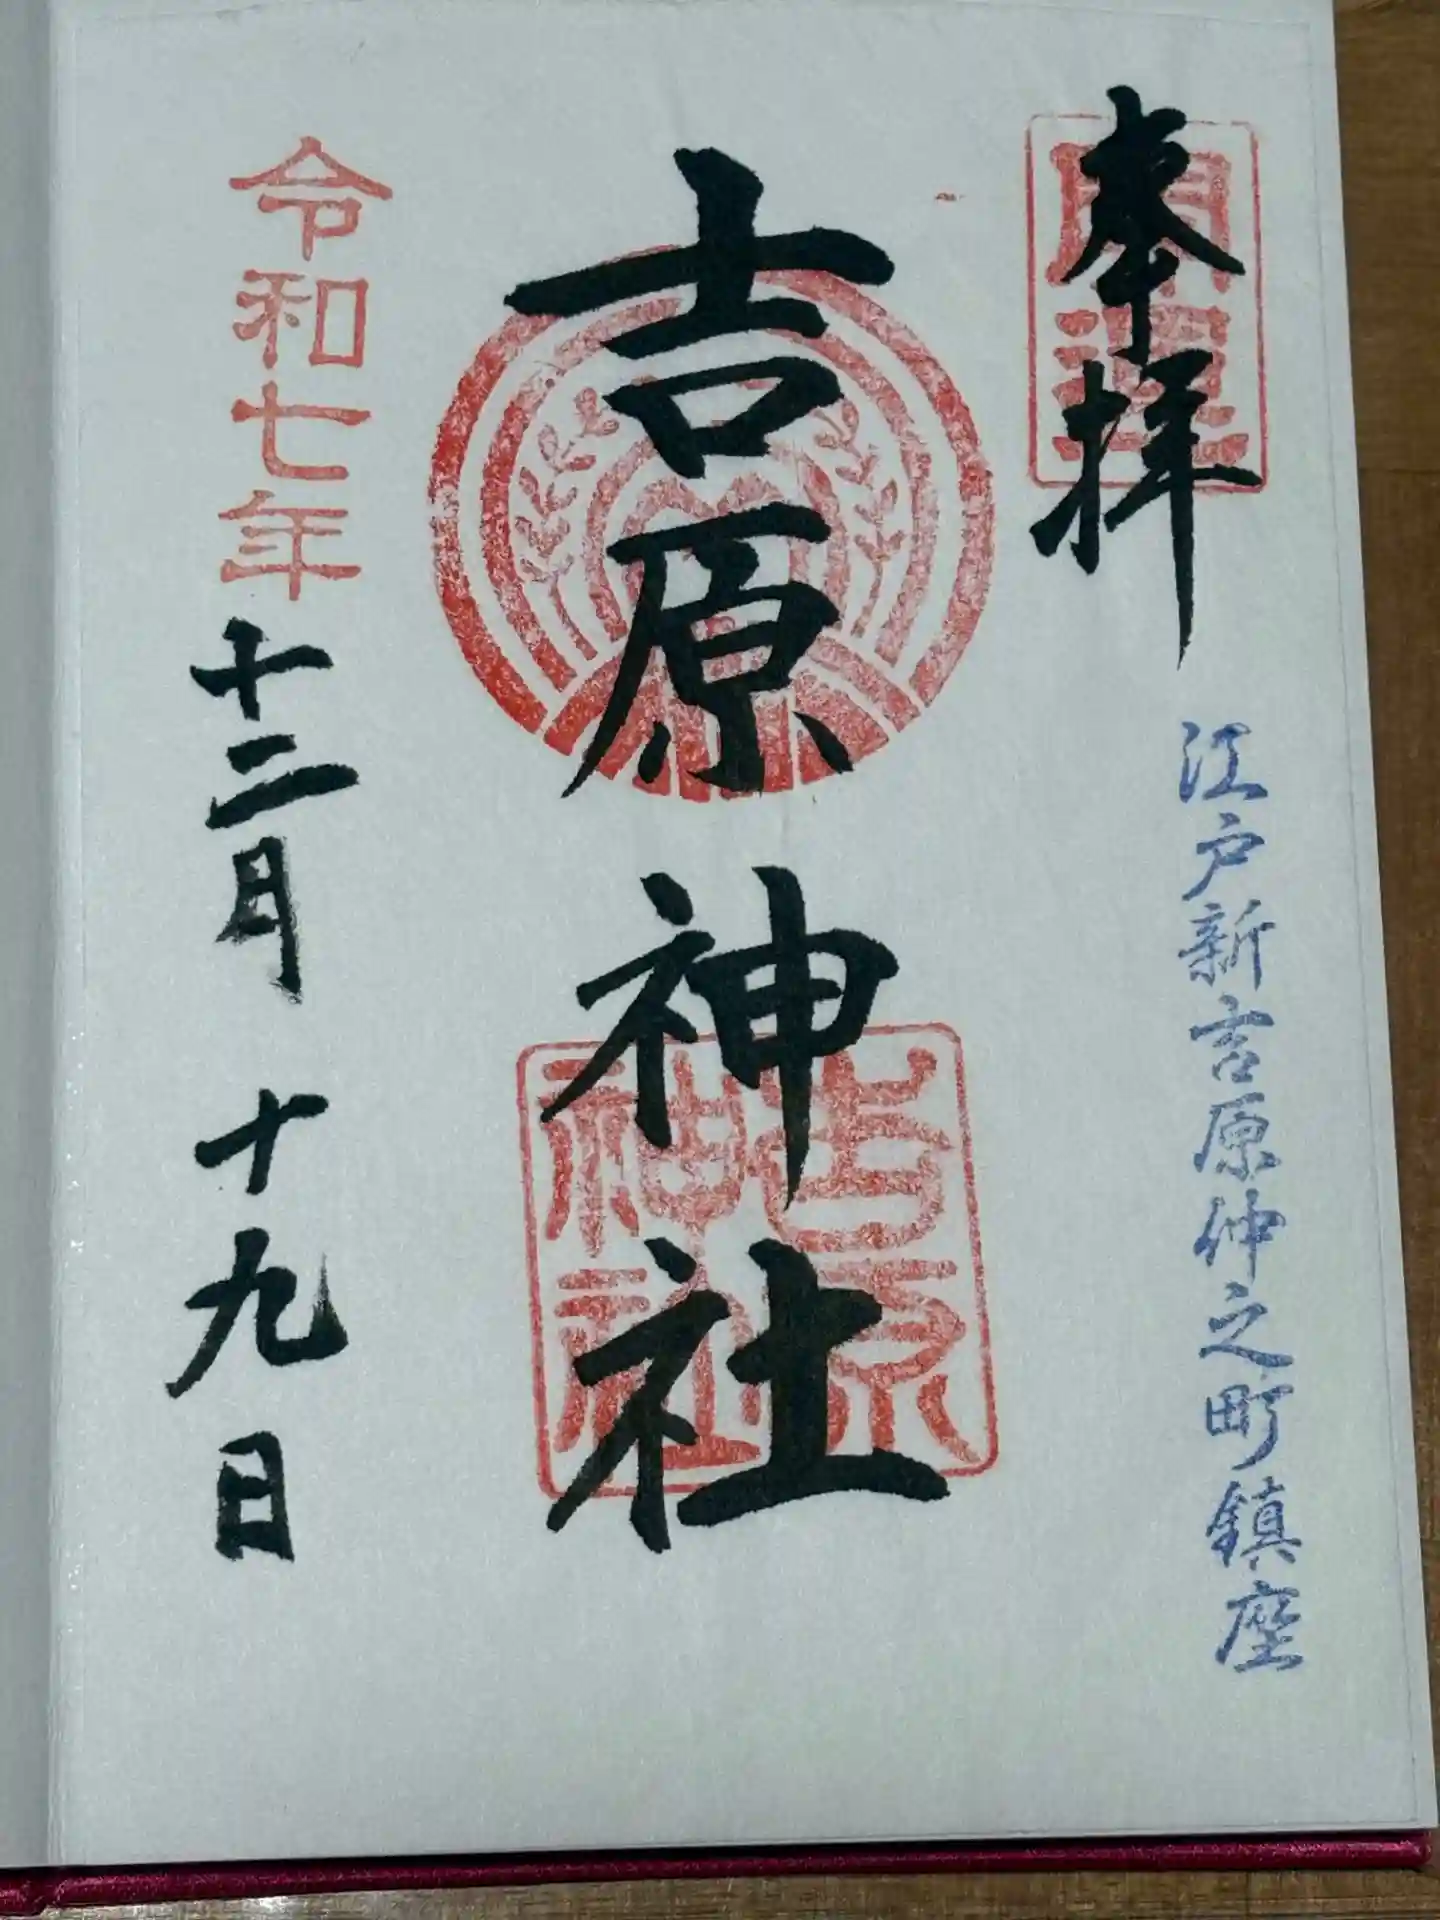 奉拝
開運
江戸新吉原仲之町鎮座
吉原神社
吉原
神社
令和七年
十二月十九日